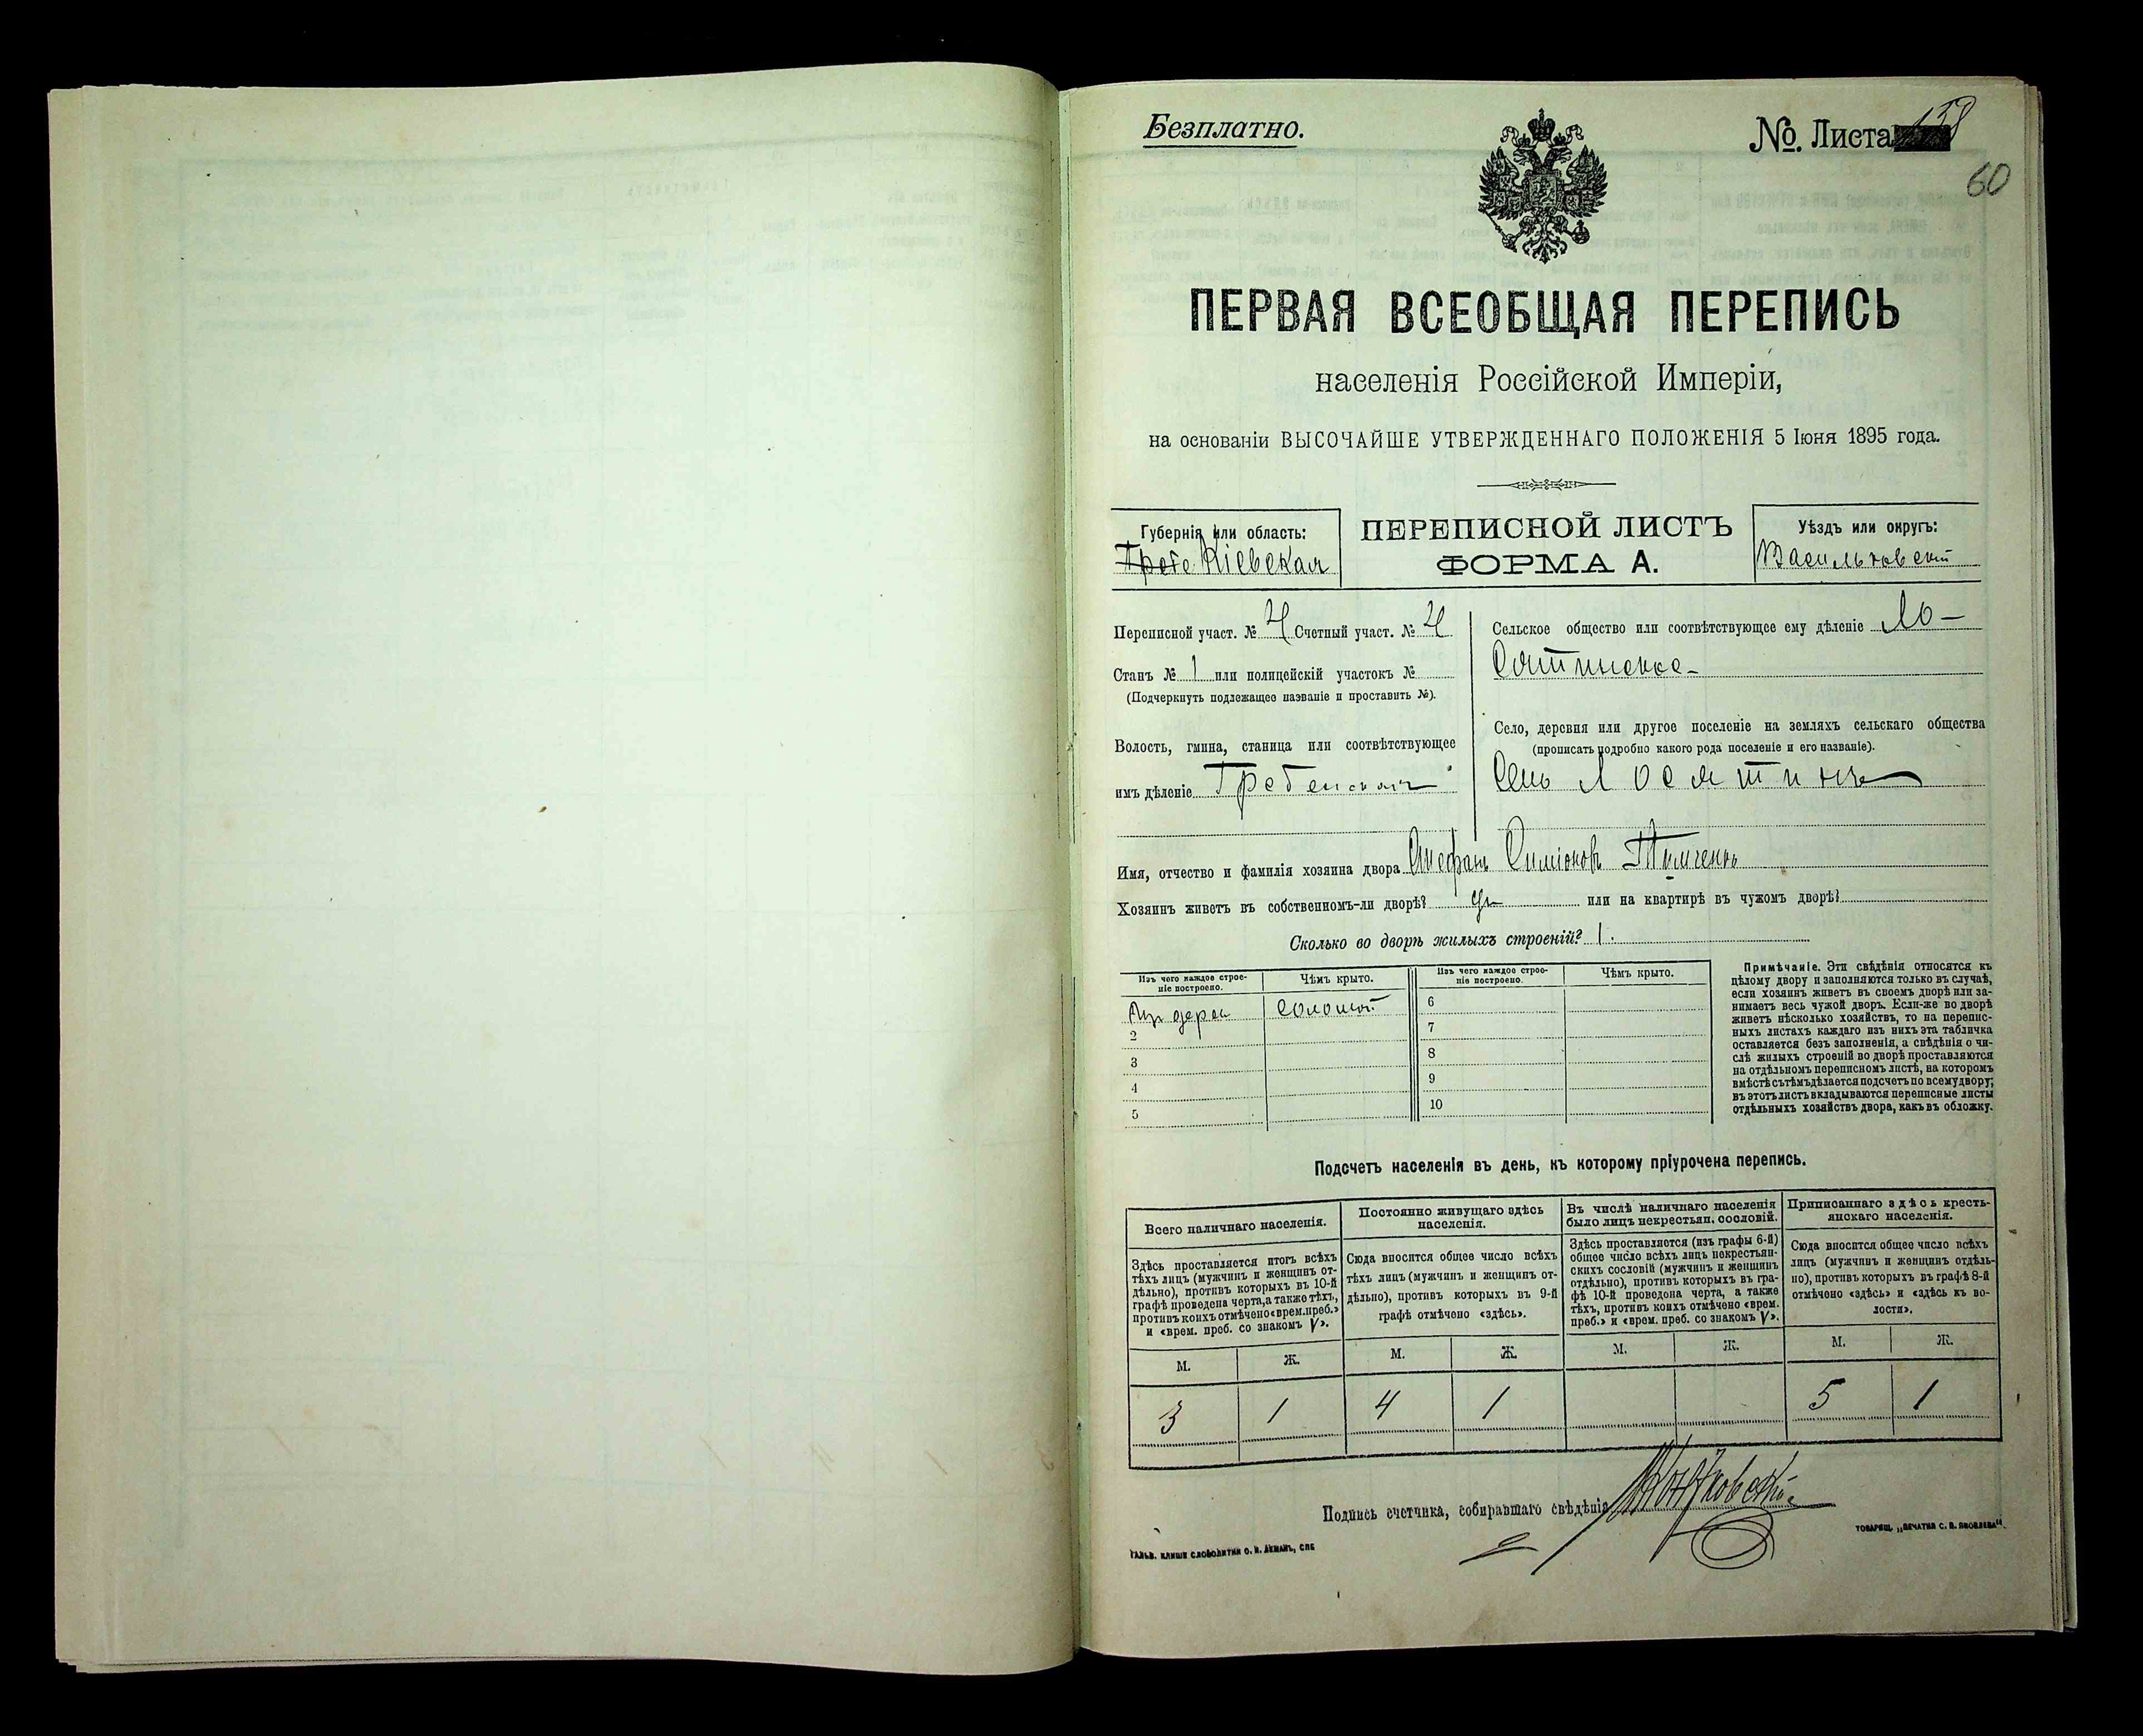 Безплатно.
№. Листа 138
60
ПЕРВАЯ ВСЕОБЩАЯ ПЕРЕПИСЬ
населенія Россійской Имперіи,
на основаніи ВЫСОЧАЙШЕ УТВЕРЖДЕННАГО ПОЛОЖЕНІЯ 5 Іюня 1895 года.
Губернія или область:
Кіевская
ПЕРЕПИСНОЙ ЛИСТЪ
ФОРМА А.
Уѣздъ или округъ:
Васильковскій
Переписной участ. № 4 Счетный участ. № 4
Станъ № 1 или полицейскій участокъ №
(Подчеркнуть подлежащее названіе и проставить №).
Волость, гмина, станица или соотвѣтствующее
имъ дѣленіе Гребенская
Сельское общество или соотвѣтствующее ему дѣленіе Ло-
сятинское
Село, деревня или другое поселеніе на земляхъ сельскаго общества
(прописать подробно какого рода поселеніе и его названіе).
Село Лосятинъ
Имя, отчество и фамилія хозяина двора Стефанъ Симіоновъ Тимченко
Хозяинъ живетъ въ собственномъ-ли дворѣ? да или на квартирѣ въ чужомъ дворѣ?
Сколько во дворѣ жилыхъ строеній? 1.
Изъ чего каждое строе-
ніе построено.
Чѣмъ крыто.
Изъ чего каждое строе-
ніе построено.
Чѣмъ крыто.
Изъ дерев соломой
2
3
4
5
6
7
8
9
10
Примѣчаніе. Эти свѣдѣнія относятся къ
цѣлому двору и заполняются только въ случаѣ,
если хозяинъ живетъ въ своемъ дворѣ или за-
нимаетъ весь чужой дворъ. Если-же во дворѣ
живетъ нѣсколько хозяйствъ, то на перепис-
ныхъ листахъ каждаго изъ нихъ эта табличка
оставляется безъ заполненія, а свѣдѣнія о чи-
слѣ жилыхъ строеній во дворѣ проставляются
на отдѣльномъ переписномъ листѣ, на которомъ
вмѣстѣ съ тѣмъ дѣлается подсчетъ по всему двору;
въ этотъ листъ вкладываются переписные листы
отдѣльныхъ хозяйствъ двора, какъ въ обложку.
Подсчетъ населенія въ день, къ которому пріурочена перепись.
Всего наличнаго населенія.
Постоянно живущаго здѣсь
населенія.
Въ числѣ наличнаго населенія
было лицъ некрестьян. сословій.
Приписаннаго здѣсь кресть-
янскаго населенія.
Здѣсь проставляется итогъ всѣхъ
тѣхъ лицъ (мужчинъ и женщинъ от-
дѣльно), противъ которыхъ въ 10-й
графѣ проведена черта, а также тѣхъ,
противъ коихъ отмѣчено «врем. преб.»
и «врем. преб. со знакомъ V».
Сюда вносится общее число всѣхъ
тѣхъ лицъ (мужчинъ и женщинъ от-
дѣльно), противъ которыхъ въ 9-й
графѣ отмѣчено «здѣсь».
Здѣсь проставляется (изъ графы 6-й)
общее число всѣхъ лицъ некрестьян-
скихъ сословій (мужчинъ и женщинъ
отдѣльно), противъ которыхъ въ гра-
фѣ 10-й проведена черта, а также
тѣхъ, противъ коихъ отмѣчено «врем.
преб.» и «врем. преб. со знакомъ V».
Сюда вносится общее число всѣхъ
лицъ (мужчинъ и женщинъ отдѣль-
но), противъ которыхъ въ графѣ 8-й
отмѣчено «здѣсь» и «здѣсь къ во-
лости».
М. Ж. М. Ж. М. Ж. М. Ж.
3 1 4 1 5 1
Подпись счетчика, собиравшаго свѣдѣнія
ГАЛЬВ. КЛИШЕ СЛОВОЛИТНИ О. И. ЛЕМАНЪ, СПБ
ТОВАРИЩ. „ПЕЧАТНЯ С. П. ЯКОВЛЕВА“.